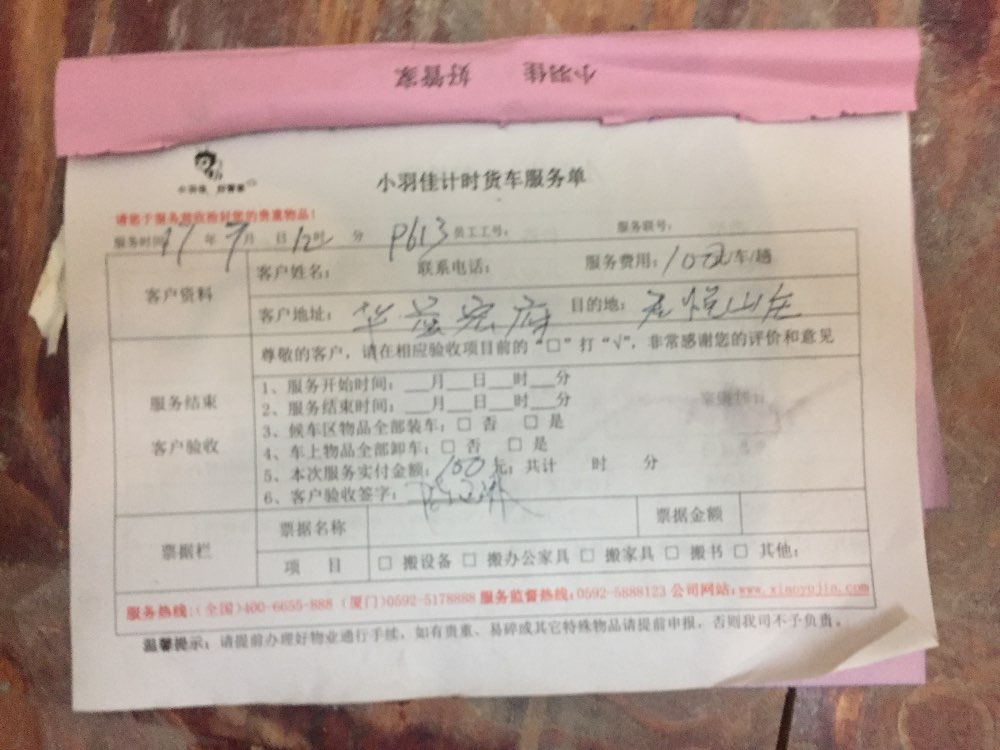 小羽佳 好管家
小羽佳 好管家
小羽佳计时货车服务单
请您于服务前收拾好您的贵重物品!
服务时间 11 年 7 月 日 12 时 分 P613 员工工号: 服务联号:
客户资料
客户姓名: 联系电话: 服务费用:100元/车/趟
客户地址: 目的地:君悦山庄
尊敬的客户,请在相应验收项目前的“□”打“√”,非常感谢您的评价和意见
服务结束
客户验收
1、服务开始时间:___月___日___时___分
2、服务结束时间:___月___日___时___分
3、候车区物品全部装车:□ 否 □ 是
4、车上物品全部卸车:□ 否 □ 是
5、本次服务实付金额:100元;共计 时 分
6、客户验收签字:
票据栏
票据名称 票据金额
项 目 □ 搬设备 □ 搬办公家具 □ 搬家具 □ 搬书 □ 其他:
服务热线:(全国)400-6655-888 (厦门)0592-5178888 服务监督热线:0592-5888123 公司网站:www.xiaoyujia.com
温馨提示:请提前办理好物业通行手续,如有贵重、易碎或其它特殊物品请提前申报,否则我司不予负责。